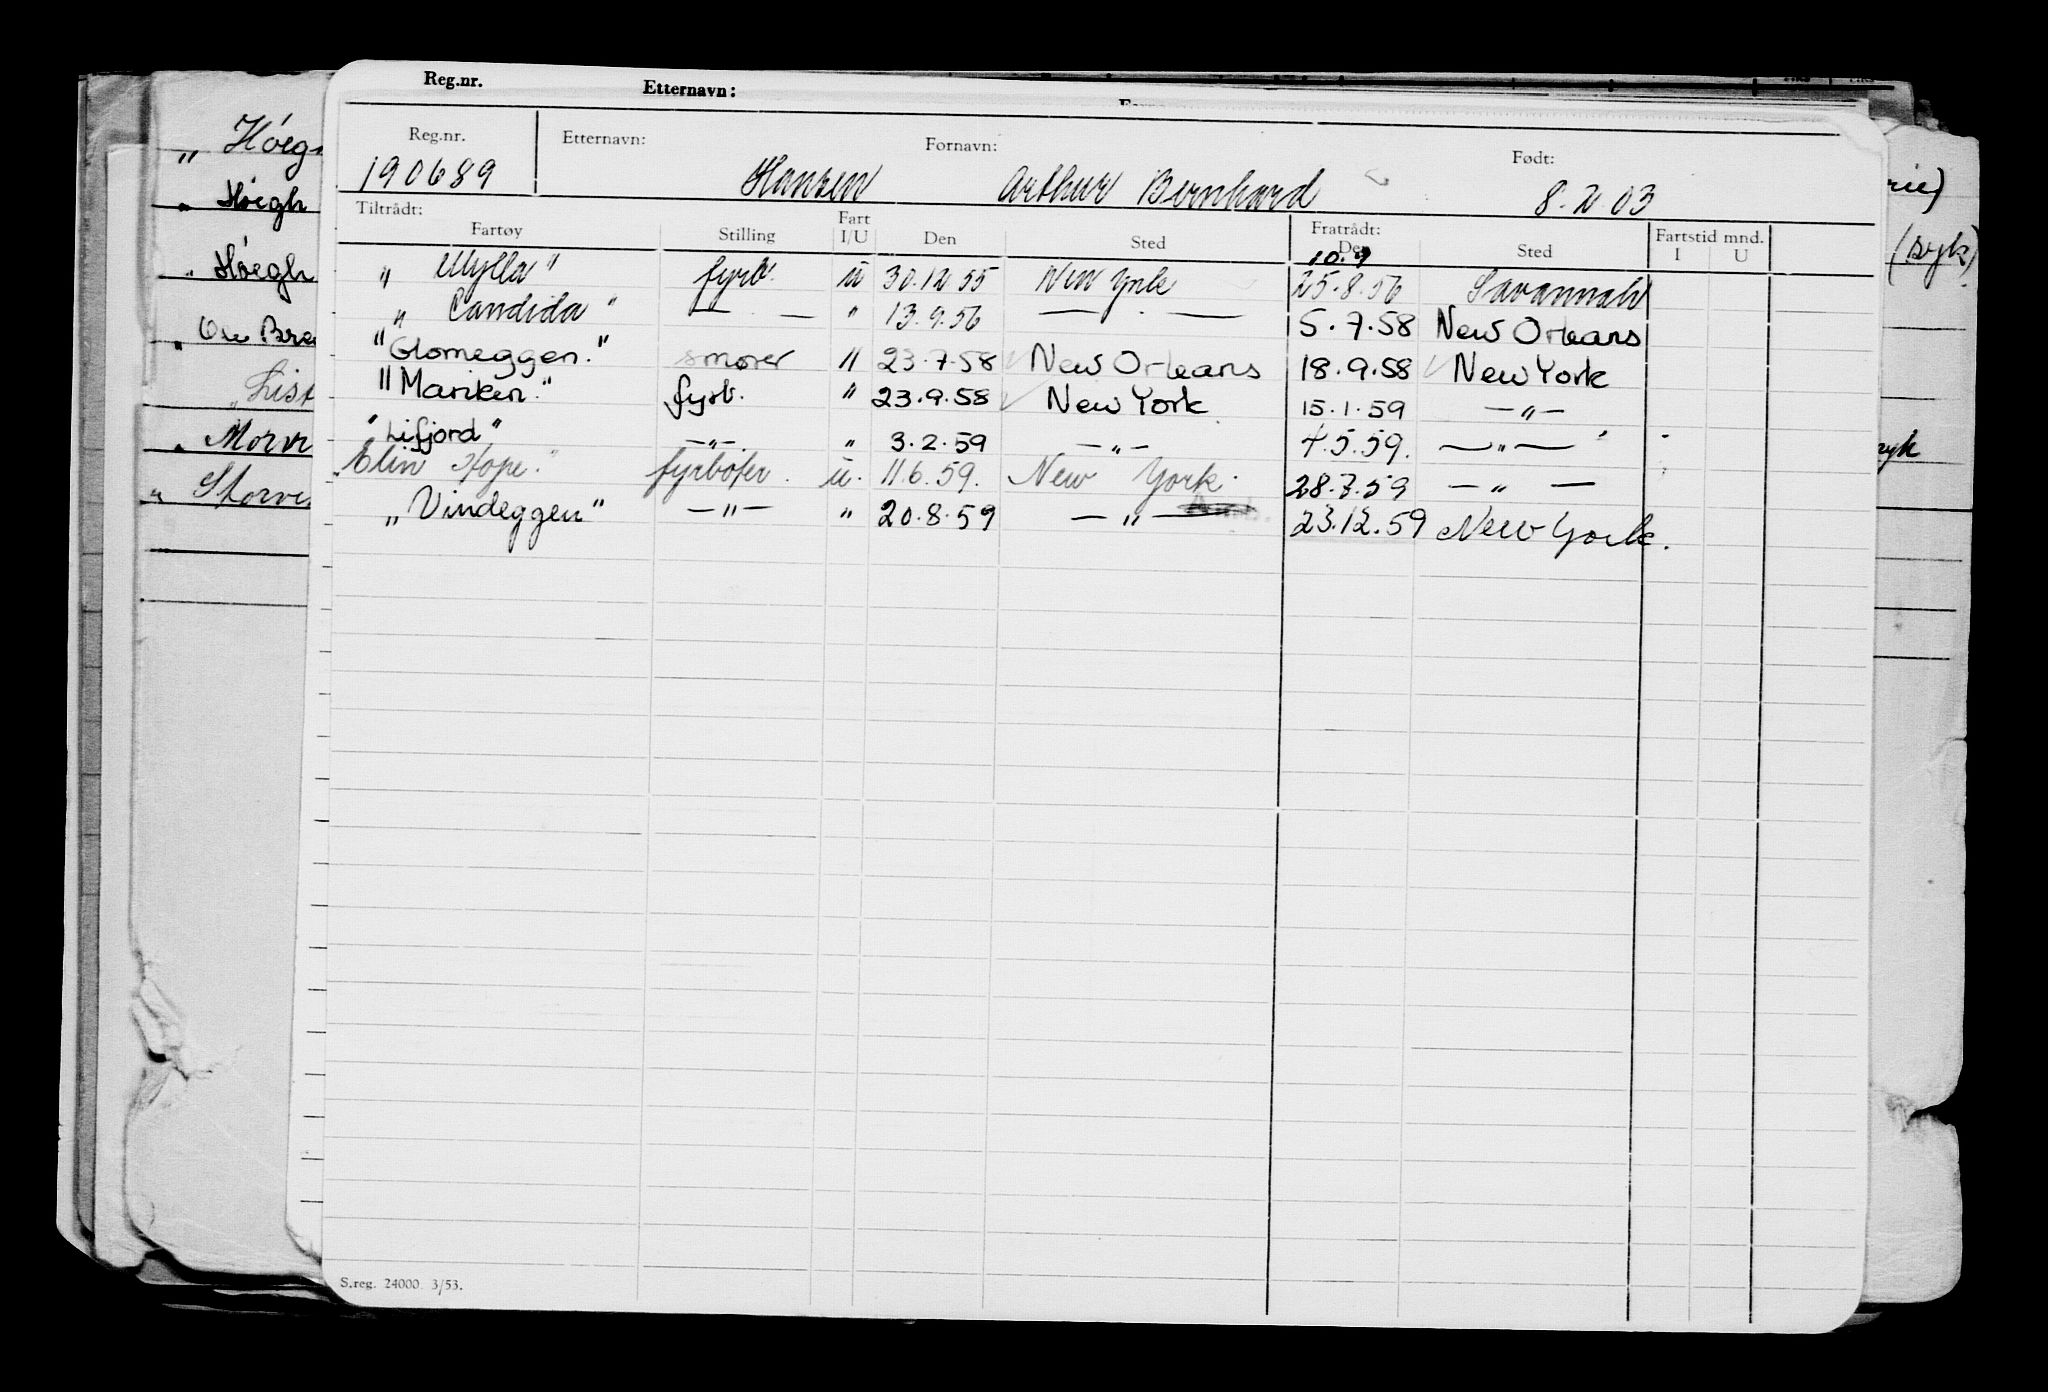 Reg.nr. Etternavn:
Reg.nr. Etternavn: Fornavn: Født:
190689 Hansen Arthur Bernhard 8.2.03
Tiltrådt: Fart Fratrådt: Fartstid mnd.
Fartøy Stilling I/U Den Sted Den Sted I U
10.9
" Mylla" fyrb. u 30.12.55 New York 25.8.56 Savannah
" Candida " — . — " 13.9.56 — . — 5.7.58 New Orleans
"Glomeggen." smører " 23.7.58 New Orleans 18.9.58 New York
"Mariken." fyrb. " 23.9.58 New York 15.1.59 —"—
"Lifjord" —"— " 3.2.59 —"— 4.5.59. —"—
"Elin Hope." fyrbøter. u. 11.6.59. New York. 28.7.59 —"—
"Vindeggen" —"— " 20.8.59 —"— 23.12.59 New York.
S.reg. 24000. 3/53.
" Høeg
" Høegh
" Høegh
" Morv
rie)
(syk)
syk